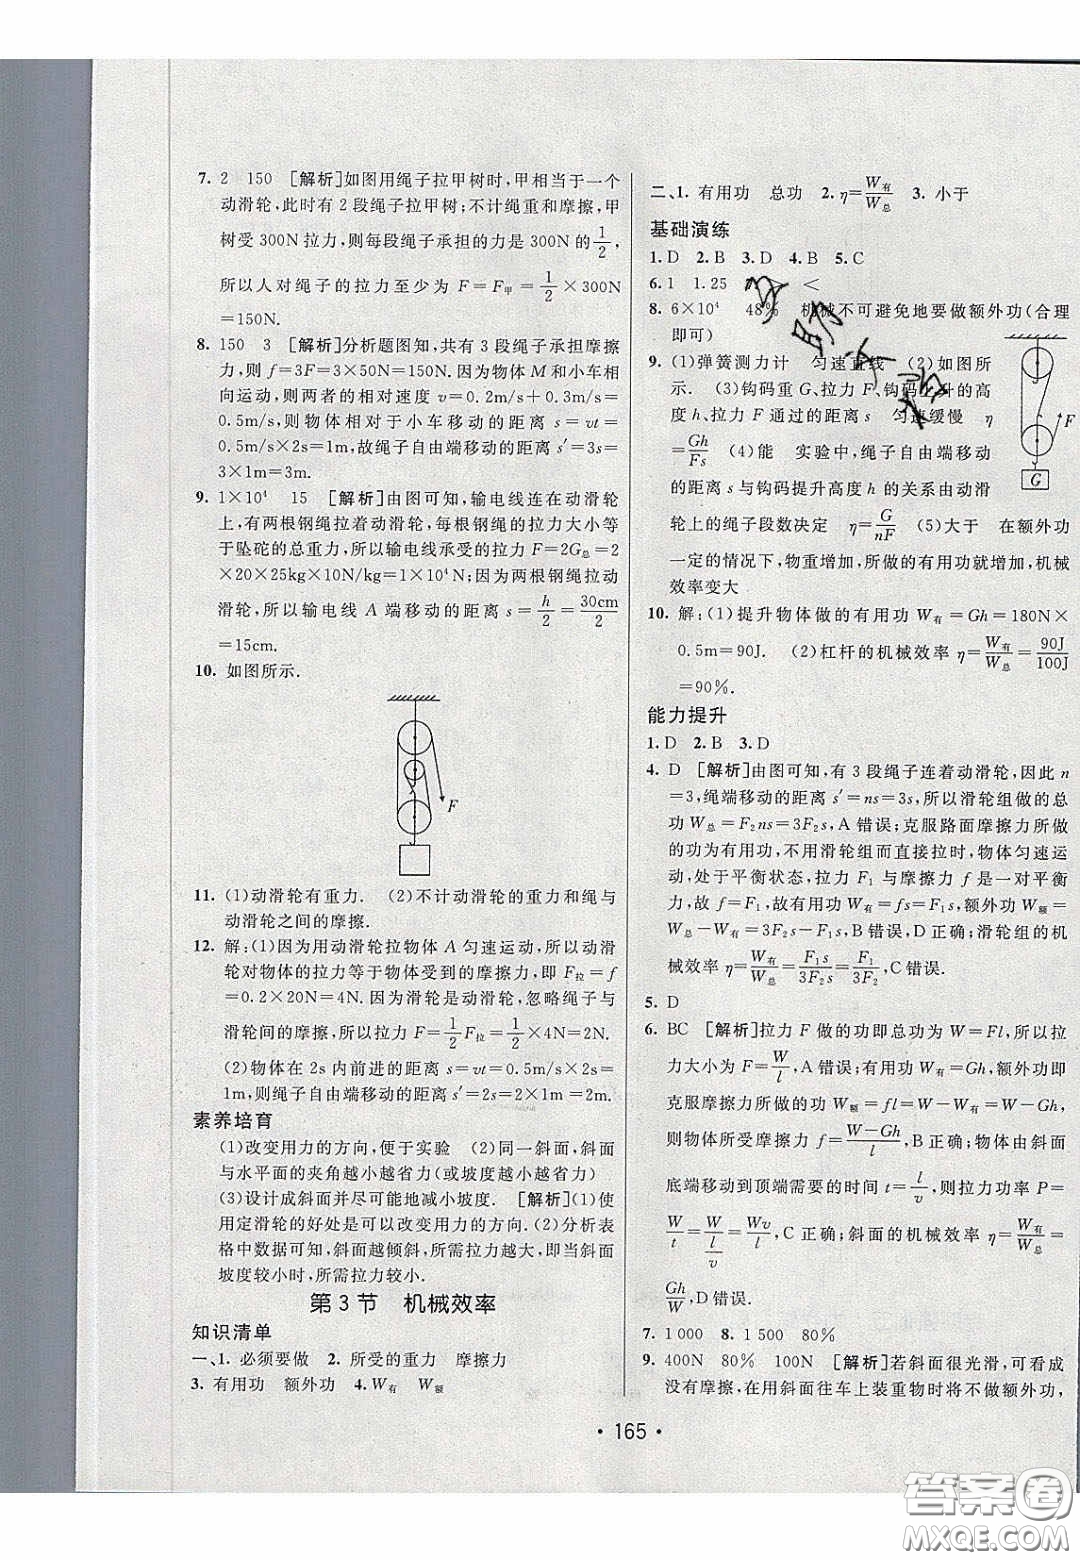 7. 2　150　[解析]如图用绳子拉甲树时,甲相当于一个
动滑轮,此时有2段绳子拉甲树;不计绳重和摩擦,甲
树受300N拉力,则每段绳子承担的力是300N的1/2,
所以人对绳子的拉力至少为F=F甲=1/2×300N
=150N.
8. 150　3　[解析]分析题图知,共有3段绳子承担摩擦
力,则f=3F=3×50N=150N.因为物体M和小车相
向运动,则两者的相对速度v=0.2m/s+0.3m/s=
0.5m/s,则物体相对于小车移动的距离s=vt=
0.5m/s×2s=1m,故绳子自由端移动的距离s′=3s=
3×1m=3m.
9. 1×10⁴　15　[解析]由图可知,输电线连在动滑轮
上,有两根钢绳拉着动滑轮,每根钢绳的拉力大小等
于坠砣的总重力,所以输电线承受的拉力F=2G总=2
×20×25kg×10N/kg=1×10⁴N;因为两根钢绳拉动
滑轮,所以输电线A端移动的距离s=h/2=30cm/2
=15cm.
10. 如图所示.
F
11. (1)动滑轮有重力.　(2)不计动滑轮的重力和绳与
动滑轮之间的摩擦.
12. 解:(1)因为用动滑轮拉物体A匀速运动,所以动滑
轮对物体的拉力等于物体受到的摩擦力,即F拉=f
=0.2×20N=4N.因为滑轮是动滑轮,忽略绳子与
滑轮间的摩擦,所以拉力F=1/2F拉=1/2×4N=2N.
(2)物体在2s内前进的距离s=vt=0.5m/s×2s=
1m,则绳子自由端移动的距离s′=2s=2×1m=2m.
素养培育
(1)改变用力的方向,便于实验　(2)同一斜面,斜面
与水平面的夹角越小越省力(或坡度越小越省力)
(3)设计成斜面并尽可能地减小坡度.　[解析](1)使
用定滑轮的好处是可以改变用力的方向.(2)分析表
格中数据可知,斜面越倾斜,所需拉力越大,即当斜面
坡度较小时,所需拉力较小.
第3节　机械效率
知识清单
一、1. 必须要做　2. 所受的重力　摩擦力
3. 有用功　额外功　4. W有　W额
二、1. 有用功　总功　2. η=W有/W总　3. 小于
基础演练
1. D　2. B　3. D　4. B　5. C
6. 1　1.25　<
8. 6×10⁴　48%　机械不可避免地要做额外功(合理
即可)
9. (1)弹簧测力计　匀速直线　(2)如图所
示.　(3)钩码重G、拉力F、钩码上升的高
度h、拉力F通过的距离s　匀速缓慢　η
=Gh/Fs　(4)能　实验中,绳子自由端移动
的距离s与钩码提升高度h的关系由动滑
轮上的绳子段数决定　η=G/nF　(5)大于　在额外功
一定的情况下,物重增加,所做的有用功就增加,机械
效率变大
F
G
10. 解:(1)提升物体做的有用功W有=Gh=180N×
0.5m=90J.　(2)杠杆的机械效率η=W有/W总=90J/100J
=90%.
能力提升
1. D　2. B　3. D
4. D　[解析]由图可知,有3段绳子连着动滑轮,因此n
=3,绳端移动的距离s′=ns=3s,所以滑轮组做的总
功W总=F₂ns=3F₂s,A错误;克服路面摩擦力所做
的功为有用功,不用滑轮组而直接拉时,物体匀速运
动,处于平衡状态,拉力F₁与摩擦力f是一对平衡
力,故f=F₁,故有用功W有=fs=F₁s,额外功W额=
W总−W有=3F₂s−F₁s,B错误,D正确;滑轮组的机
械效率η=W有/W总=F₁s/3F₂s=F₁/3F₂,C错误.
5. D
6. BC　[解析]拉力F做的功即总功为W=Fl,所以拉
力大小为F=W/l,A错误;有用功W有=Gh,所以
克服摩擦力所做的功W额=fl=W−W有=W−Gh,
则物体所受摩擦力f=(W−Gh)/l,B正确;物体由斜面
底端移动到顶端需要的时间t=l/v,则拉力功率P=
W/t=W/(l/v)=Wv/l,C正确;斜面的机械效率η=W有/W总=
Gh/W,D错误.
7. 1 000　8. 1 500　80%
9. 400N　80%　100N　[解析]若斜面很光滑,可看成
没有摩擦,在用斜面往车上装重物时将不做额外功,
• 165 •
答案卷
MXQE.COM